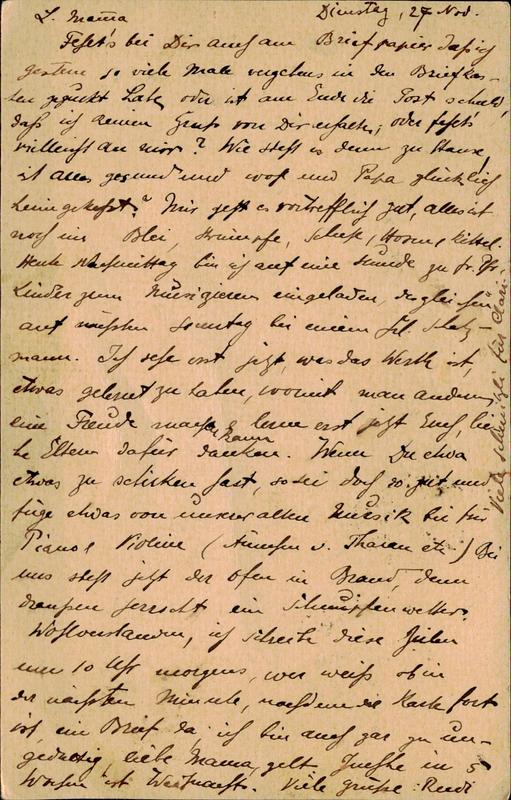 Dienstag, 27 Nov.
L. Mama
Fehlt's bei Dir auch am Briefpapier daß ich
gestern so viele Male vergebens in den Briefkas-
ten geguckt habe oder ist am Ende die Post schuld,
daß ich keinen Gruß von Dir erhalte, oder fehlt's
vielleicht an mir? Wie steht es denn zu Hause,
ist alles gesund und wohl und Papa glücklich
heimgekehrt? Mir geht es vortrefflich gut, alles ist
noch im Blei, Strümpfe, Schuhe, Hosen, Kittel.
Heute Nachmittag bin ich auf eine Stunde zu Fr. Pfr.
Linder zum Musizieren eingeladen, desgleichen
auf nächsten Sonntag bei einem Frl. Holz-
mann. Ich sehe erst jetzt, was das Werth ist,
etwas gelernt zu haben, womit man andern
eine Freude machen kann & lerne erst jetzt Euch, lie-
be Eltern dafür danken. Wenn Du etwa
etwas zu schicken hast, so sei doch so gut und
füge etwas von unserer alten Musik bei für
Piano & Violine ( v. Tharan etc.) Bei
uns steht jetzt der Ofen in Brand, denn
draußen herrscht ein Schnupfenwetter.
Wohlverstanden, ich schreibe diese Zeilen
um 10 Uhr morgens, wer weiß ob in
der nächsten Minute, nachdem die Karte fort
ist, ein Brief da; ich bin auch gar zu un-
geduldig, liebe Mama, gelt. Juhe in 5
Wochen ist Weihnacht. Viele Grüße: Ruedi
Viele